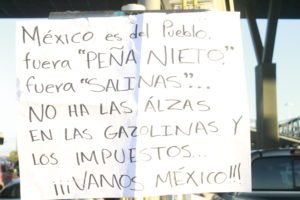 México es del Pueblo.
fuera "PEÑA NIETO."
fuera "SALINAS"...
NO HA LAS ÁLZAS
EN LAS GAZOLINAS Y
LOS IMPUESTOS...
¡¡¡VAMOS MÉXICO!!!